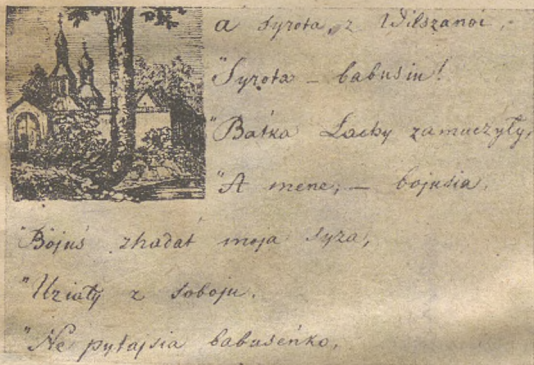 a syrota, z Wilszanoi,
"Syrota – babusiu!
"Baťka Lachy zamuczyły,
"A mene, – bojusia,
"Bojuś zhadať moja syza,
"Uziały z soboju.
"Ne pytajsia babuseńko,